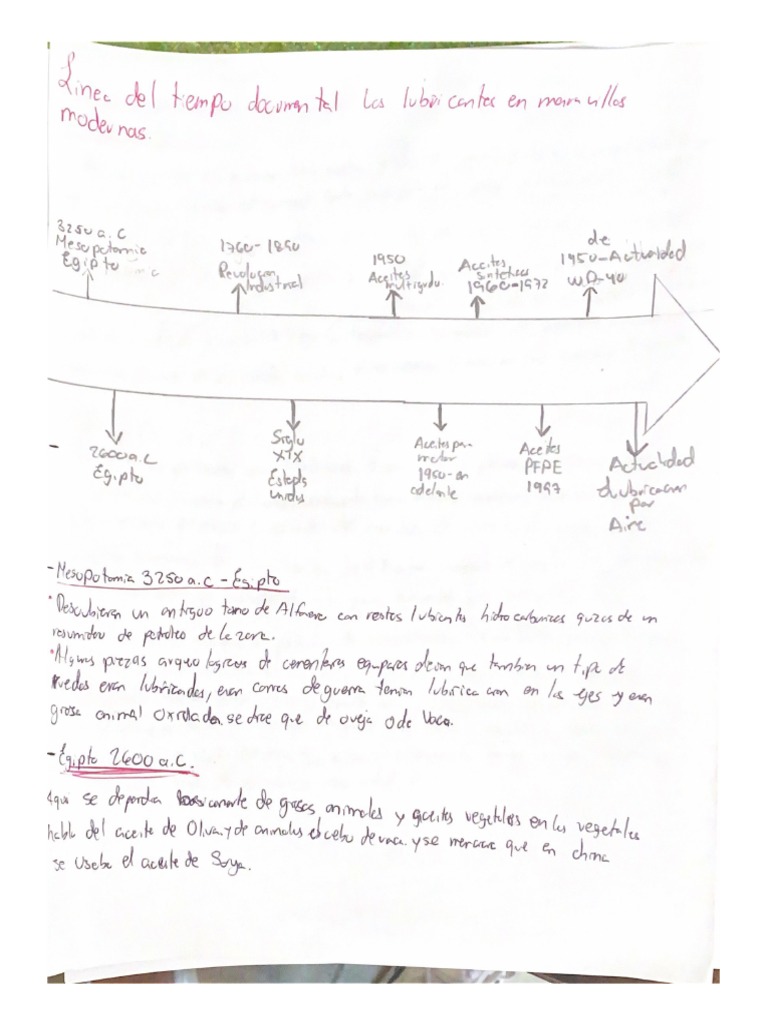 Linea del tiempo documental Los lubricantes en maravillas
modernas.
3250 a.C
Mesopotamia
Egipto
1760-1840
Revolucion
Industrial
1950
Aceites
multigrado
Aceites
sinteticos
1960-1972
de
1950-Actualidad
WD-40
2600 a.C
Egipto
Siglo
XIX
Estados
unidos
Aceites para
motor
1950-en
adelante
Aceites
PFPE
1997
Actualidad
Lubricacion
por
Aire
-Mesopotamia 3250 a.c - Egipto
Descubieron un antiguo torno de Alfarero con restos hidrocarburos quizas de un
resumidor de petroleo de la zona.
Algunas piezas arqueologicas de cementerios dician que tambien un tipo de
ruedas eran lubricadas, eran carros de guerra tenian lubricacion en los ejes y eran
grasa animal oxidada, se dice que de oveja o de Vaca.
-Egipto 2600 a.C.
Aqui se dependia basicamente de grasas animales y aceites vegetales en los vegetales
habla del aceite de Oliva y de animales el cebo de vaca y se menciona que en china
se usaba el aceite de Soya.